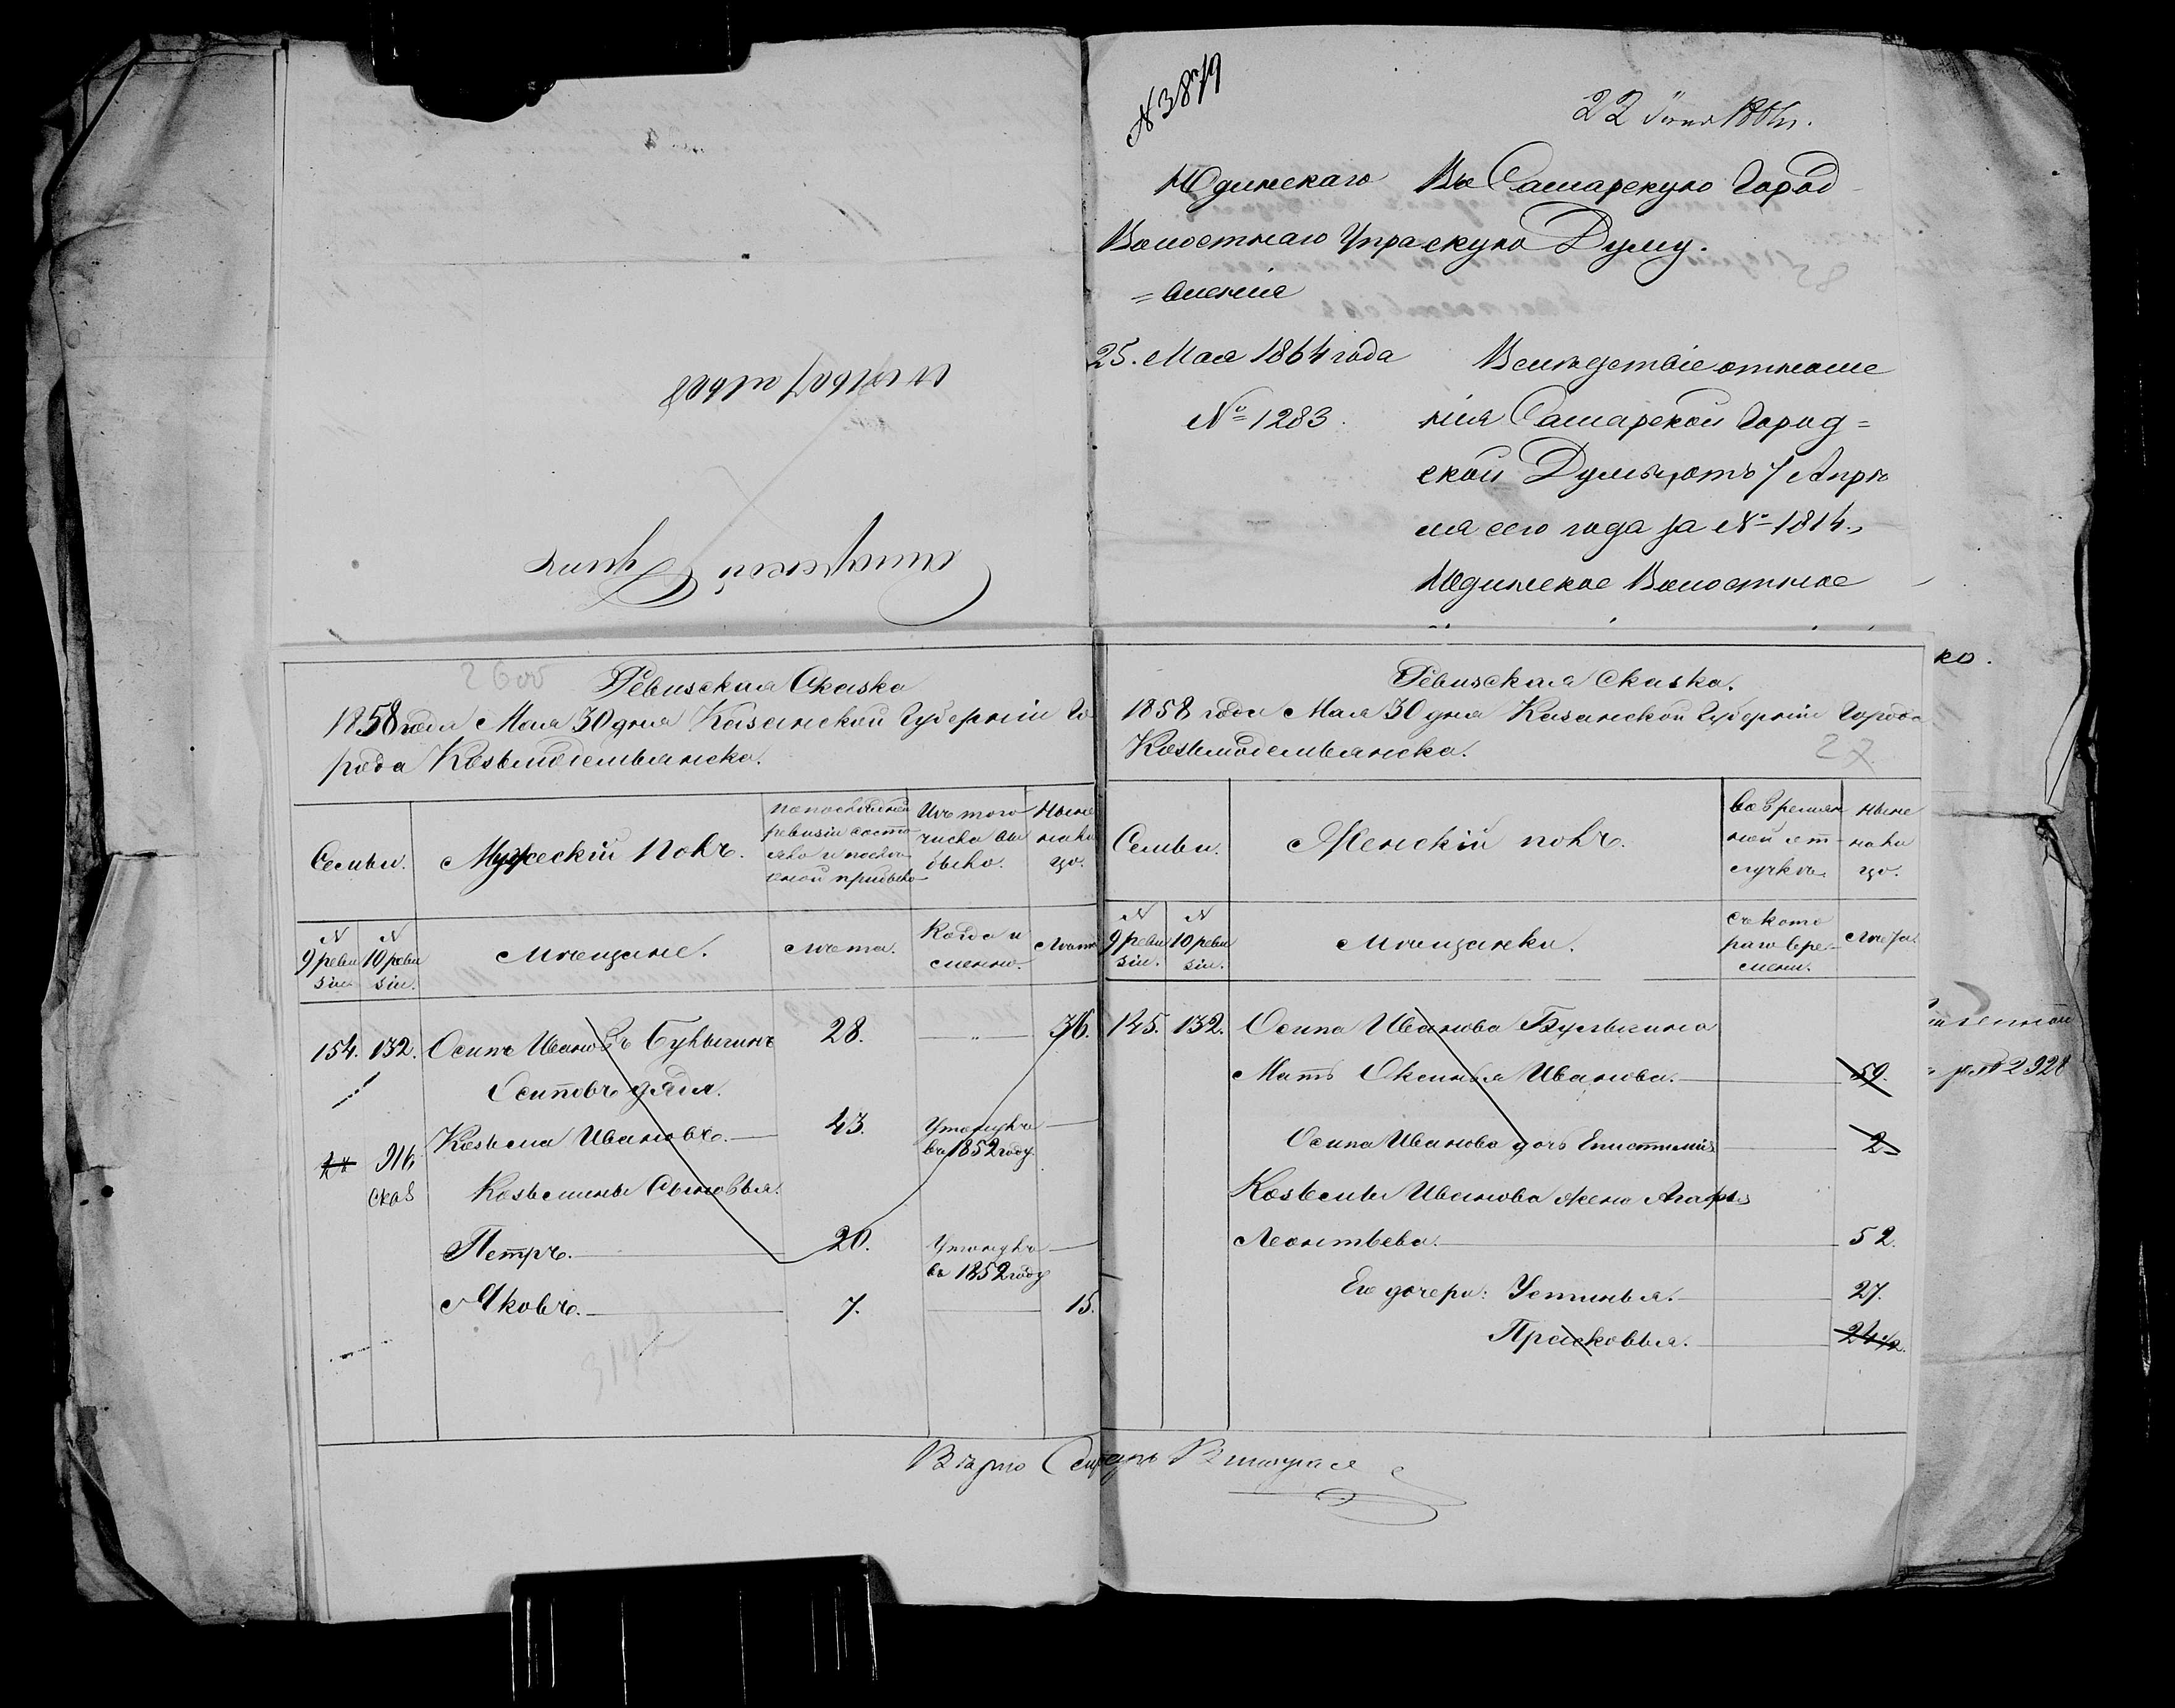 N 3879
22 Июня 1864 г.
Юдинскаго
Волостнаго Упра
=вленія
25. Мая 1864 года
№ 1283.
Въ Самарскую Город
скую Думу.
Вслѣдствіе отноше
нія Самарской Город=
ской Думы, отъ 7 Апрѣ
ля сего года за № 1814.,
Юдинское Волостное
Самарской Думы
ко.
2928
Ревизская Сказка
1858 года Мая 30 дня Казанской Губерніи Го
рода Козьмодемьянска.
Семьи. Мужескій полъ. По послѣдней ревизіи состо яло и послѣ оной прибыло Изъ того числа вы было. Ныне на ли цо.
N 9 реви зіи N 10 реви зіи. Мѣщане. Лѣта. Когда и именно. Лѣта
154. 132. Осипъ Ивановъ Булыгинъ 28. — " — 36.
Осиповъ дядя.
Козьма Ивановъ. 43. Умолкъ въ 1852 году
Козьмины Сыновья.
Петръ. 20. въ 1852 году
Яковъ. 7. 15.
Ревизская Сказка.
1858 года Мая 30 дня Казанской Губерніи Города
Козьмодемьянска.
27
Семьи. Женскій полъ. Во времян ной от лучкѣ. Ныне на ли цо.
N 9 реви зіи. N 10 реви зіи. Мѣщанки. Съ кото раго вре мени. Лѣта.
145. 132. Осипа Иванова Булыгина
Мать Оксинья Иванова. 59.
Осипа Иванова дочь Епистимія 2
Козьмы Иванова жена Агафья
Леонтьева. 52.
Его дочери: Устинья. 27.
Прасковья. 24½.
Вѣрно Секретарь